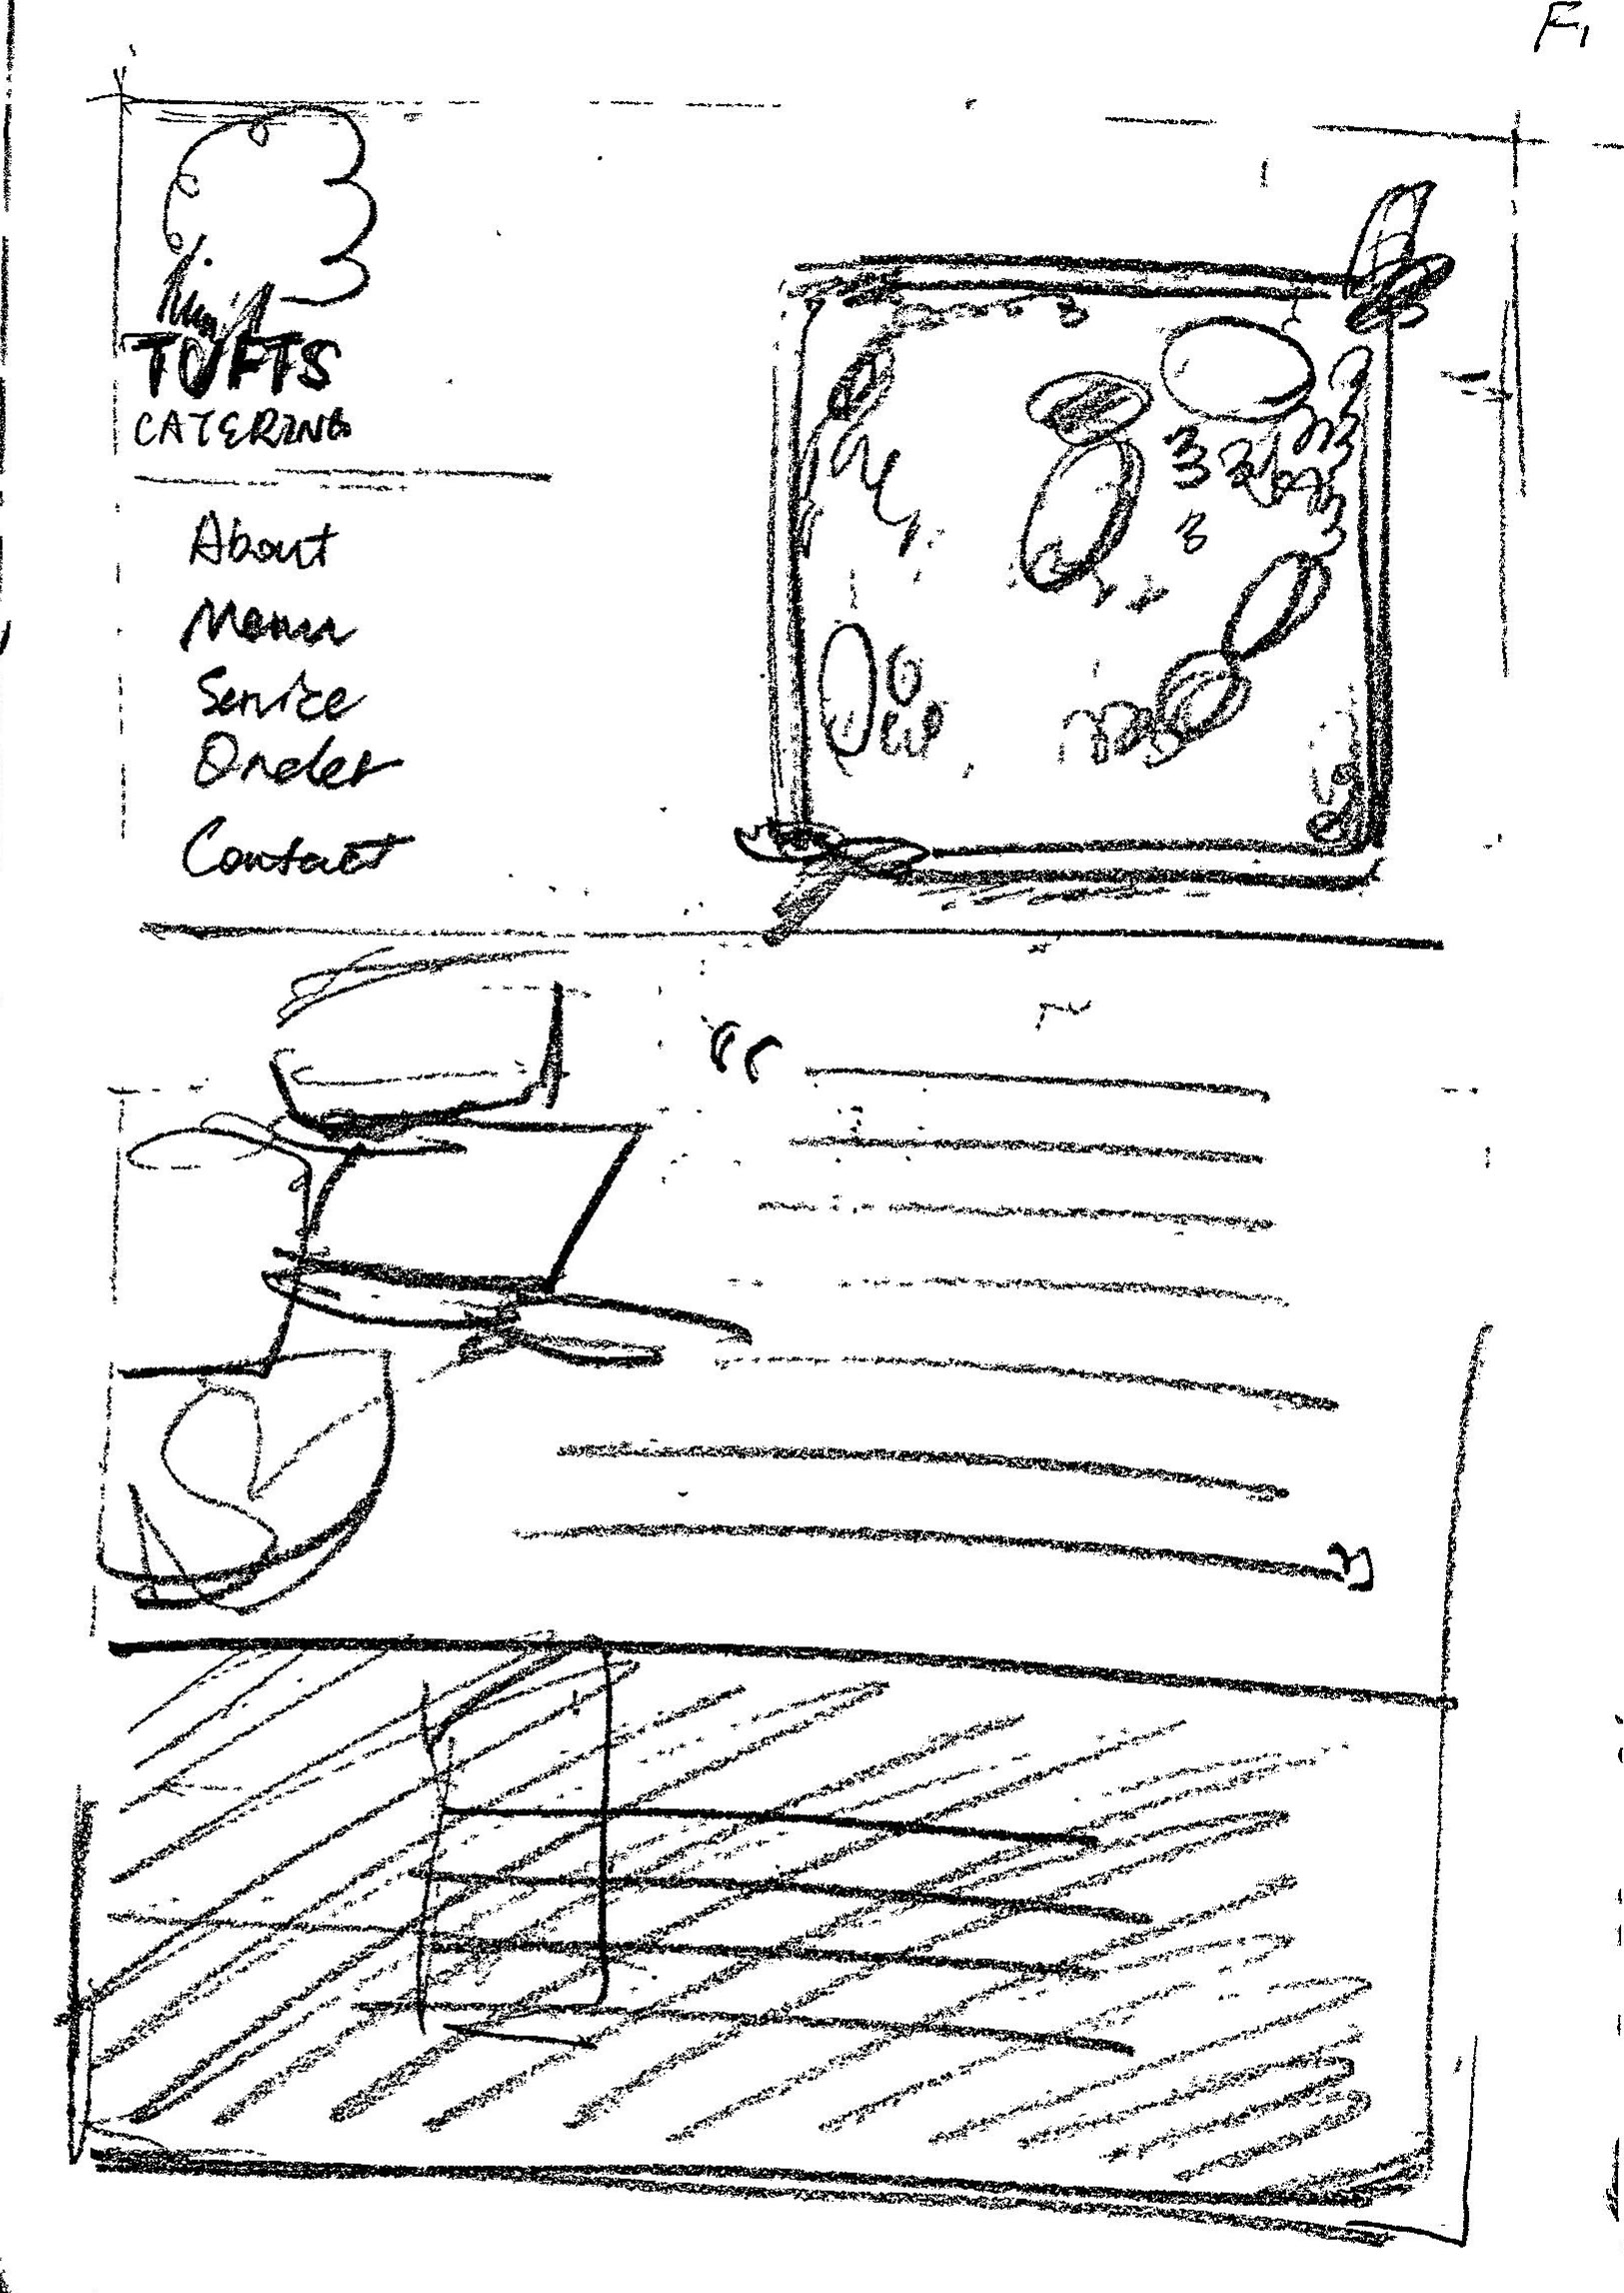 F1
TUFTS
CATERING
About
Menu
Service
Order
Contact
“
”